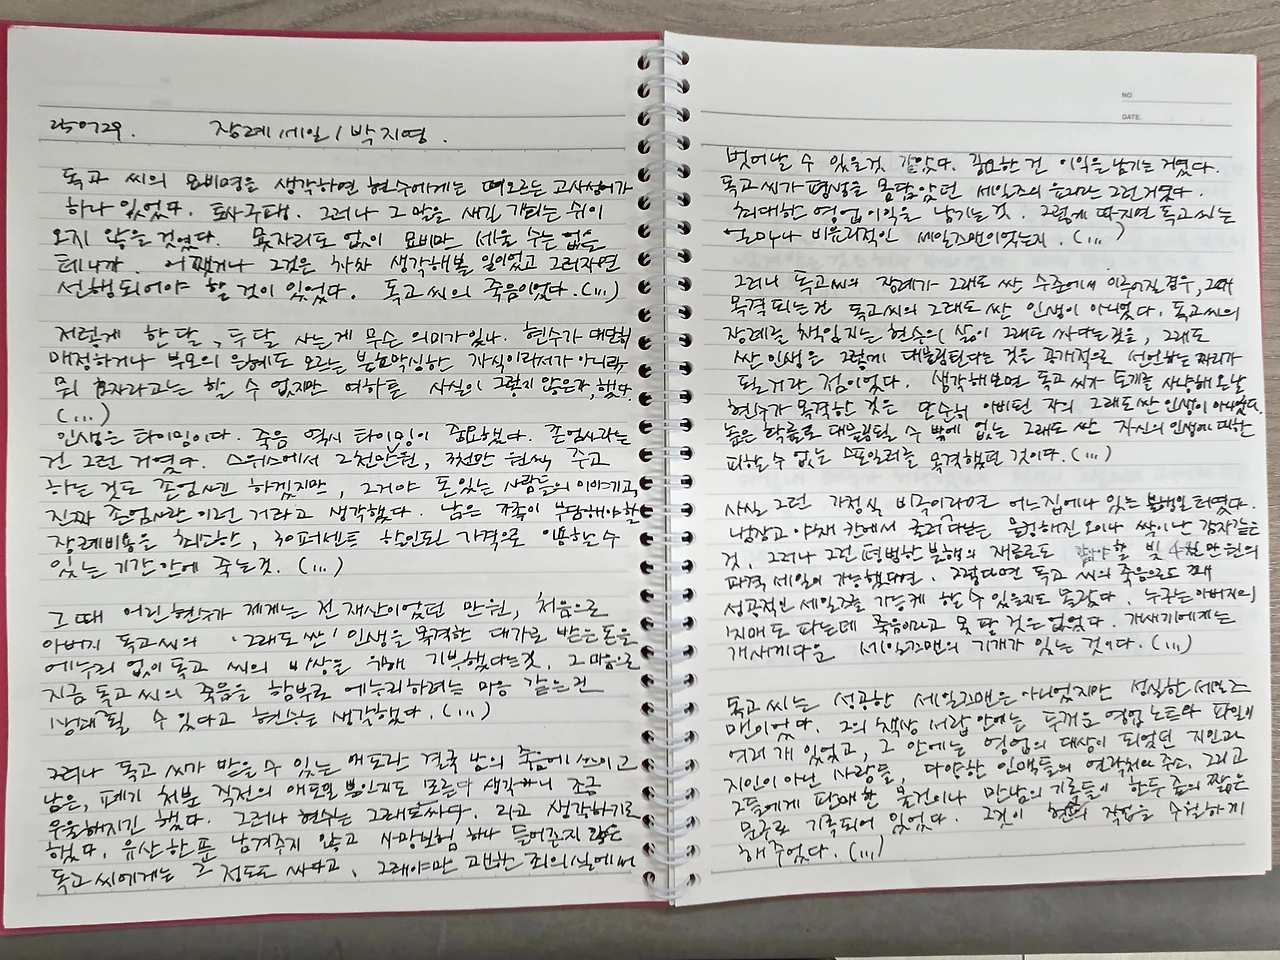 250729. 장례 세일 / 박지영.
독고 씨의 묘비명을 생각하면 현수에게는 떠오르는 고사성어가
하나 있었다. 토사구팽. 그러나 그 말을 새길 기회는 쉬이
오지 않을 것이었다. 묫자리도 없이 묘비만 세울 수는 없을
테니까. 어쨌거나 그것은 차차 생각해볼 일이었고 그러자면
선행되어야 할 것이 있었다. 독고 씨의 죽음이었다. (...)
저렇게 한 달, 두 달 사는 게 무슨 의미가 있나. 현수가 대단히
매정하거나 부모의 은혜도 모르는 분효막심한 자식이라서가 아니라,
뭐 효자라고는 할 수 없지만 여하튼 사실이 그렇지 않은가, 했다.
(...)
인생은 타이밍이다. 죽음 역시 타이밍이 중요했다. 존엄사라는
건 그런 거였다. 스위스에서 2천만 원, 3천만 원씩 주고
하는 것도 존엄사긴 하겠지만, 그거야 돈 있는 사람들의 이야기고,
진짜 존엄사란 이런 거라고 생각했다. 남은 가족이 부담해야 할
장례비용을 최소한, 30퍼센트 할인된 가격으로 이용할 수
있는 기간 안에 죽는 것. (...)
그때 어린 현수가 제게는 전 재산이었던 만 원, 처음으로
아버지 독고 씨의 '그래도 싼' 인생을 목격한 대가로 받은 돈을
에누리 없이 독고 씨의 비상을 위해 기부했다는 것, 그 마음으로
지금 독고 씨의 죽음을 함부로 에누리하려는 마음 같은 건
상태 될 수 있다고 현수는 생각했다. (...)
그러나 독고 씨가 받을 수 있는 애도란 결국 남의 죽음에 쓰이고
남은, 폐기 처분 직전의 애도일 뿐인지도 모른다 생각하니 조금
우울해지긴 했다. 그러나 현수는 그래도 싸다. 라고 생각하기로
했다. 유산 한 푼 남겨주지 않고 사망보험 하나 들어준지 않은
독고 씨에게는 그 정도도 싸다고, 그래야만 고만한 죄의식에서
NO.
DATE.
벗어날 수 있을 것 같았다. 중요한 건 이익을 남기는 거였다.
독고 씨가 평생을 몸담았던 세일즈의 윤리란 그런 거였다.
최대한 영업이익을 남기는 것. 그렇게 따지면 독고 씨는
얼마나 비윤리적인 세일즈맨이었는지. (...)
그러나 독고씨의 장례가 그래도 싼 수준에서 이루어질 경우, 그때
목격되는 건 독고 씨의 그래도 싼 인생이 아니었다. 독고 씨의
장례를 책임지는 현수의 삶이 그래도 싸다는 것을, 그래도
싼 인생은 그렇게 대물림된다는 것을 공개적으로 선언하는 자리가
될 거란 점이었다. 생각해보면 독고 씨가 토끼를 사냥해 온 날
현수가 목격한 것은 단순히 아버지란 자의 그래도 싼 인생이 아니었다.
높은 확률로 대물림될 수 밖에 없는 그래도 싼 자신의 인생에 대한
피할 수 없는 스포일러를 목격했던 것이다. (...)
사실 그런 가정식 비극이라면 어느 집에나 있는 불행일 터였다.
냉장고 야채 칸에서 굴러다니는 물렁해진 오이나 싹이 난 감자 같은
것. 그러나 그런 평범한 불행의 재료로도 갚아야 할 빚 4천만 원의
파격 세일이 가능했다면. 그렇다면 독고 씨의 죽음으로도 꽤
성공적인 세일즈를 가능케 할 수 있을지도 몰랐다. 누구는 아버지의
치매도 파는데 죽음이라고 못 팔 것은 없었다. 개새끼에게는
개새끼다운 세일즈맨의 기개가 있는 것이다. (...)
독고 씨는 성공한 세일즈맨은 아니었지만 성실한 세일즈
맨이었다. 그의 책상 서랍 안에는 두꺼운 영업 노트와 파일이
여러 개 있었고, 그 안에는 영업의 대상이 되었던 지인과
지인이 아닌 사람들, 다양한 인맥들의 연락처와 주소, 그리고
그들에게 판매한 물건이나 만남의 기록들이 한두 줄의 짧은
문구로 기록되어 있었다. 그것이 현수의 작업을 수월하게
해 주었다. (...)